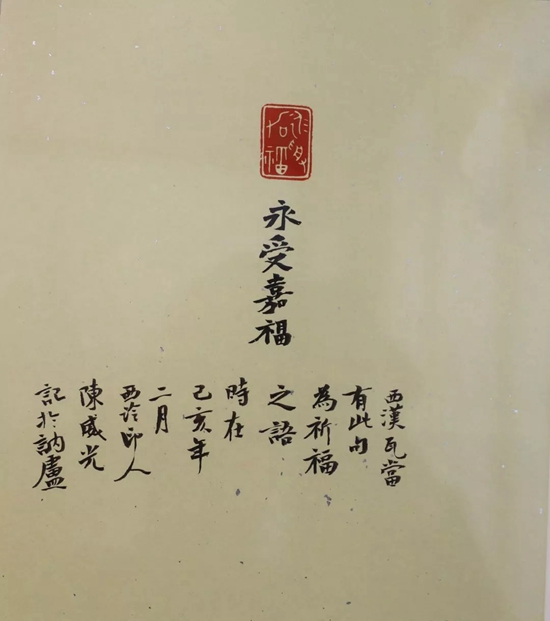 永受嘉福
永受嘉福
西漢瓦當
有此句
為祈福
之語
時在
己亥年
二月
西泠印人
陳威光
記於訥盧